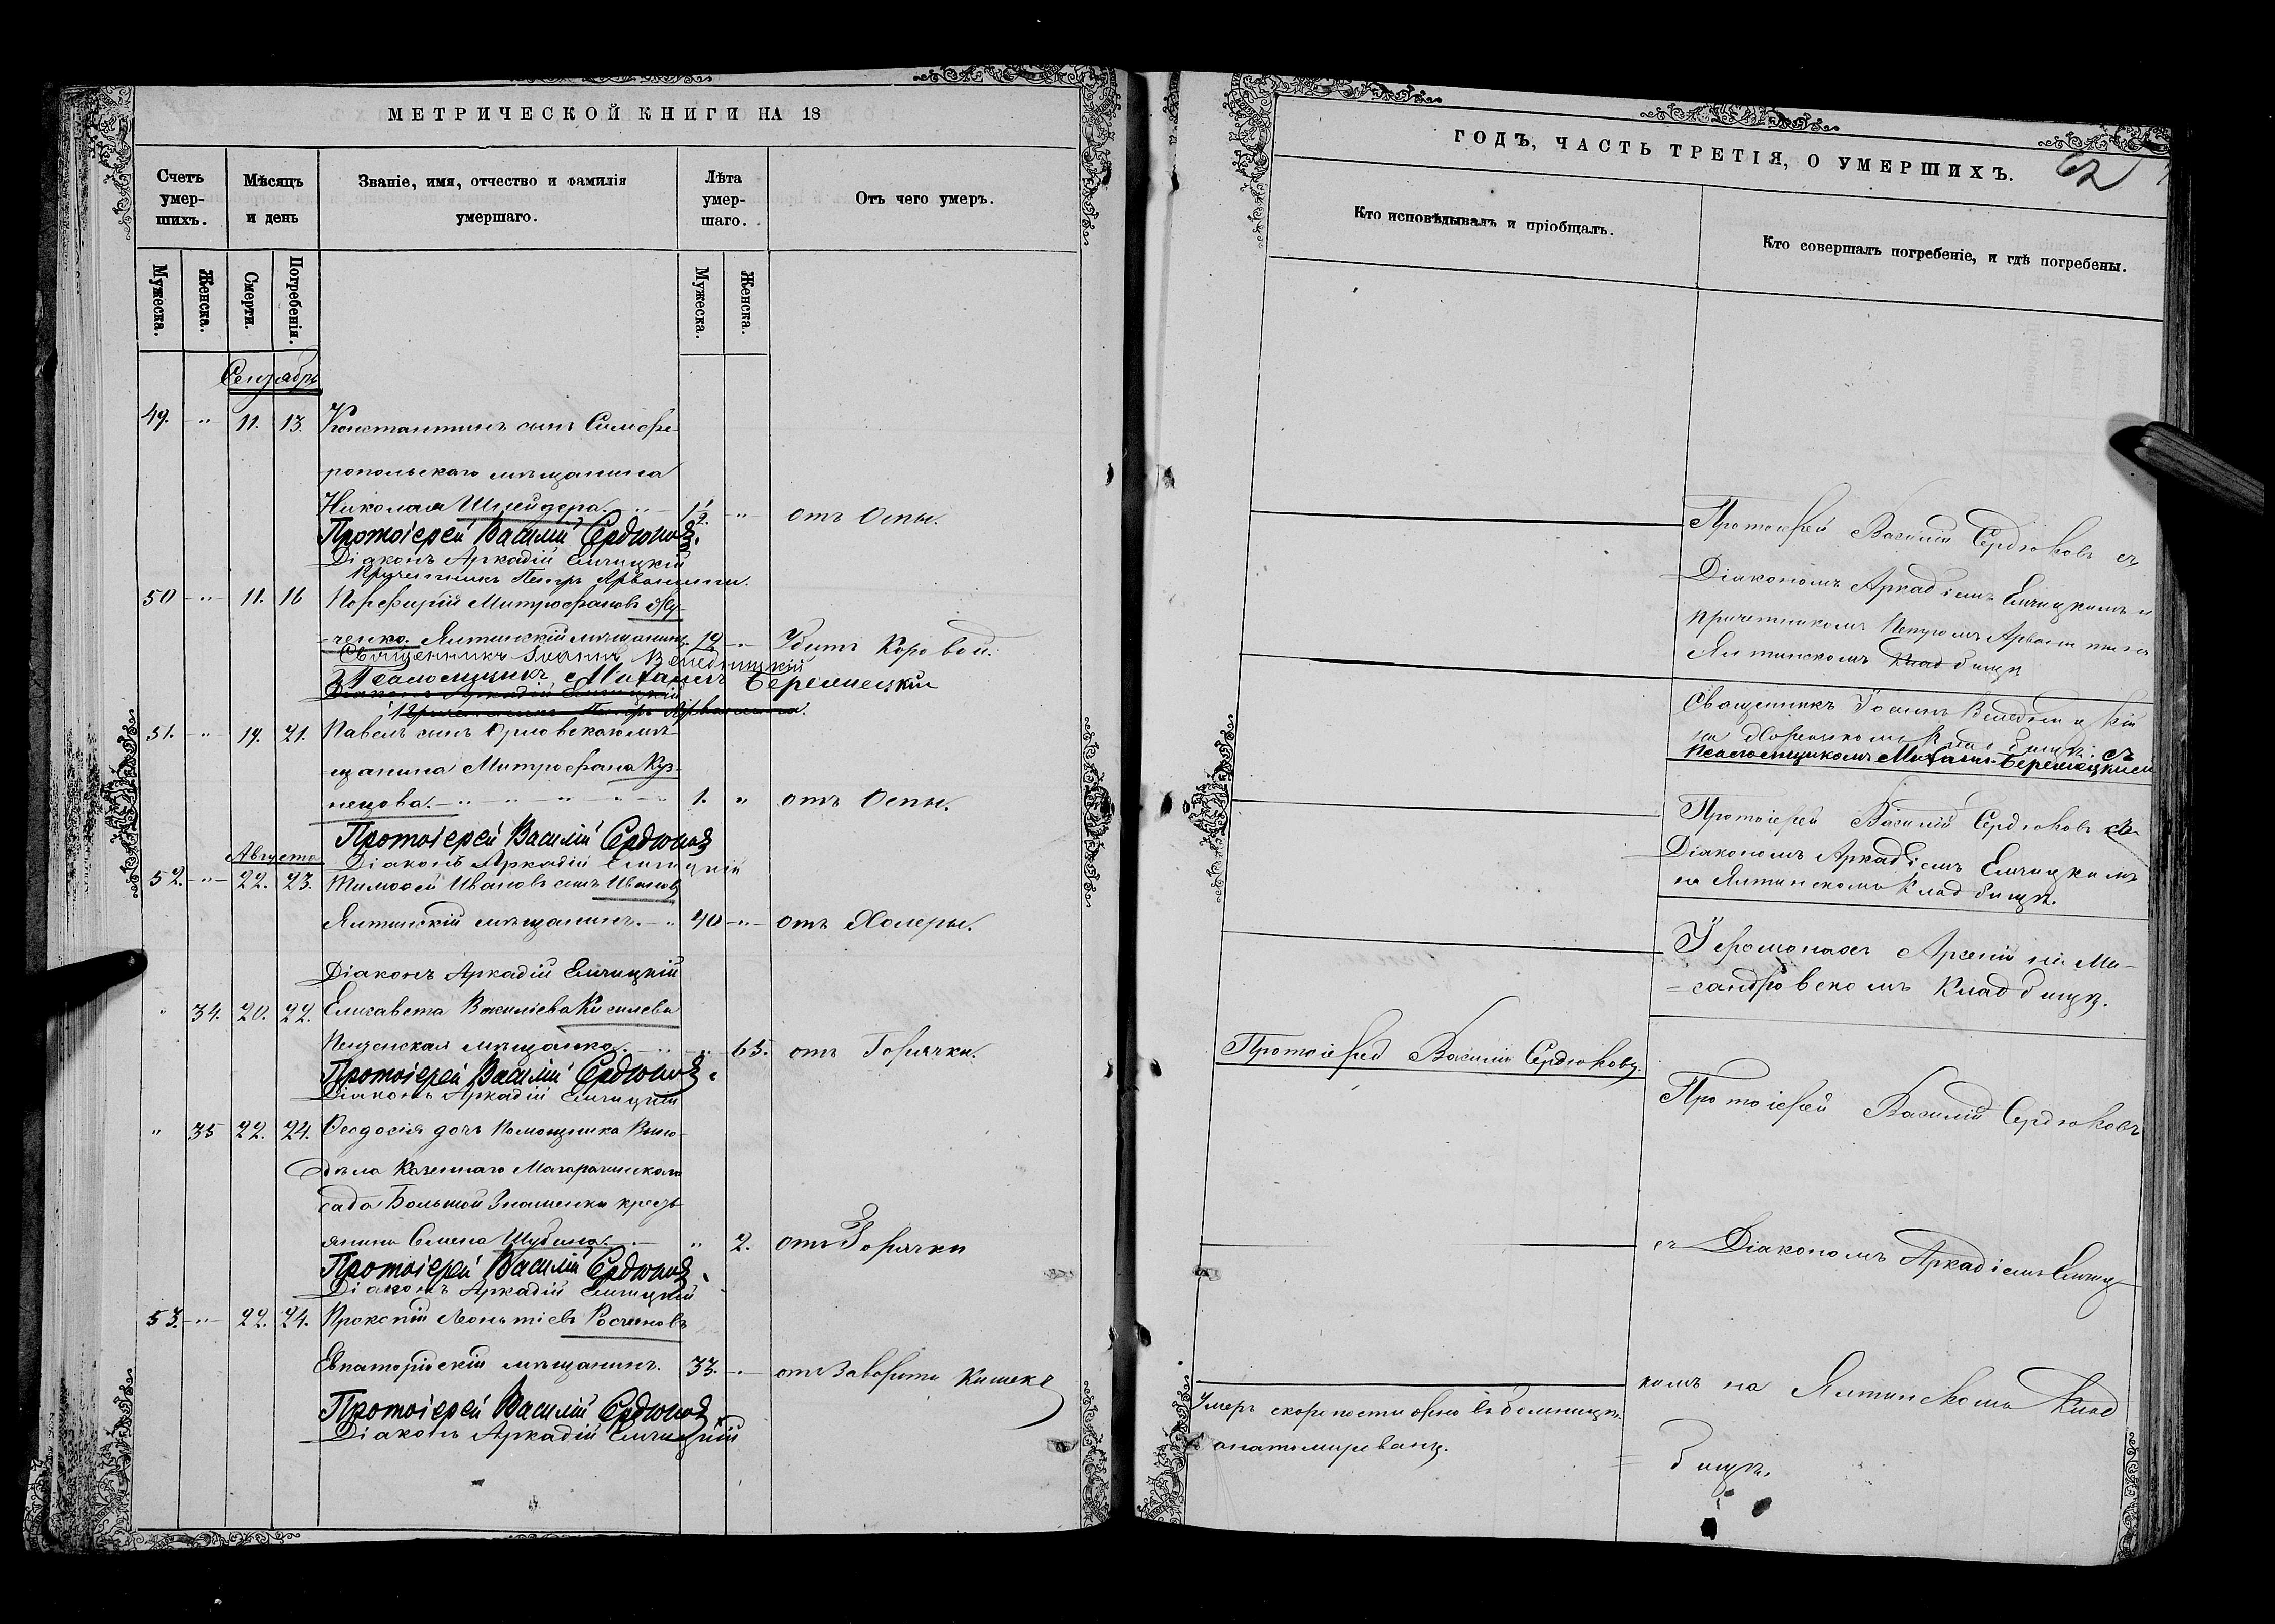 МЕТРИЧЕСКОЙ КНИГИ НА 18
Счетъ умер- шихъ.
Мѣсяцъ и день
Званіе, имя, отчество и фамилія умершаго.
Лѣта умер- шаго.
Отъ чего умеръ.
Мужеска.
Женска.
Смерти.
Погребенія.
Мужеска.
Женска.
Сентябрь
49. " 11. 13. Константинъ сынъ Симфе-
ропольскаго мѣщанина
Николая Шнейдера. 1½. " отъ Оспы.
Протоіерей Василій Сердюковъ.
Діаконъ Аркадій Елчицкій
Причетникъ Петръ
50 " 11. 16 Порфирій Митрофановъ
ченко. Ялтинскій мѣщанинъ. 19 " Убитъ Коровой.
Священникъ Іоаннъ
Псаломщикъ Михаилъ
Діаконъ Аркадій Елчицкій
Причетникъ Петръ
51. " 19. 21. Павелъ сынъ Орловскаго мѣ-
щанина Митрофана Куз-
нецова. 1. " отъ Оспы.
Протоіерей Василій Сердюковъ
Августа
Діаконъ Аркадій Елчицкій
52. " 22. 23. Тимоѳей Ивановъ сынъ Ивановъ
Ялтинскій мѣщанинъ. 40 " отъ Холеры.
Діаконъ Аркадій Елчицкій
" 34. 20. 22. Елисавета Васильева Киселева
мѣщанка. " 65. отъ Горячки.
Протоіерей Василій Сердюковъ.
Діаконъ Аркадій Елчицкій
" 35 22. 24. Ѳеодосія дочь Помощника Вино-
дѣла Казеннаго Магарачинскаго
сада Большой Знаменки кресть-
янина Семена Шубина. " 2. отъ Горячки
Протоіерей Василій Сердюковъ.
Діаконъ Аркадій Елчицкій
53. " 22. 24. Прокопій Леонтіевъ
Евпаторійскій мѣщанинъ. 33. " отъ Заворота Кишекъ
Протоіерей Василій Сердюковъ.
Діаконъ Аркадій Елчицкій
ГОДЪ, ЧАСТЬ ТРЕТІЯ, О УМЕРШИХЪ.
62
Кто исповѣдывалъ и пріобщалъ.
Кто совершалъ погребеніе, и гдѣ погребены.
Протоіерей Василій Сердюковъ съ
Діакономъ Аркадіемъ Елчицкимъ и
причетникомъ Петромъ
Ялтинскомъ Кладбищѣ
Священникъ Іоаннъ
на Кладбищѣ. съ
Псаломщикомъ Михаил
Протоіерей Василій Сердюковъ съ
Діакономъ Аркадіемъ Елчицкимъ
на Ялтинскомъ Кладбищѣ.
Іеромонахъ Арсеній на Ма-
сандровскомъ Кладбищѣ.
Протоіерей Василій Сердюковъ.
Протоіерей Василій Сердюковъ
съ Діакономъ Аркадіемъ Елчиц-
кимъ на Ялтинскомъ Клад
бищѣ.
Умеръ скоропостижно въ больницѣ.
анатомированъ.